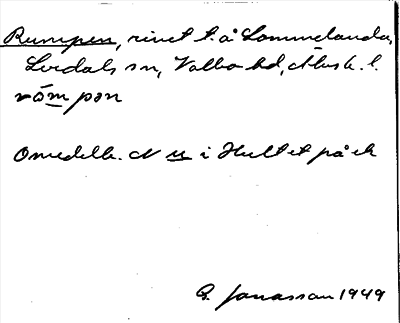 Rumpen, rivet t. å Sommelanda,
Lerdals sn, Valbo hd, Älvsb. l.
römpən
Omedelb. N u i Hultet på ek
G. Jonasson 1949